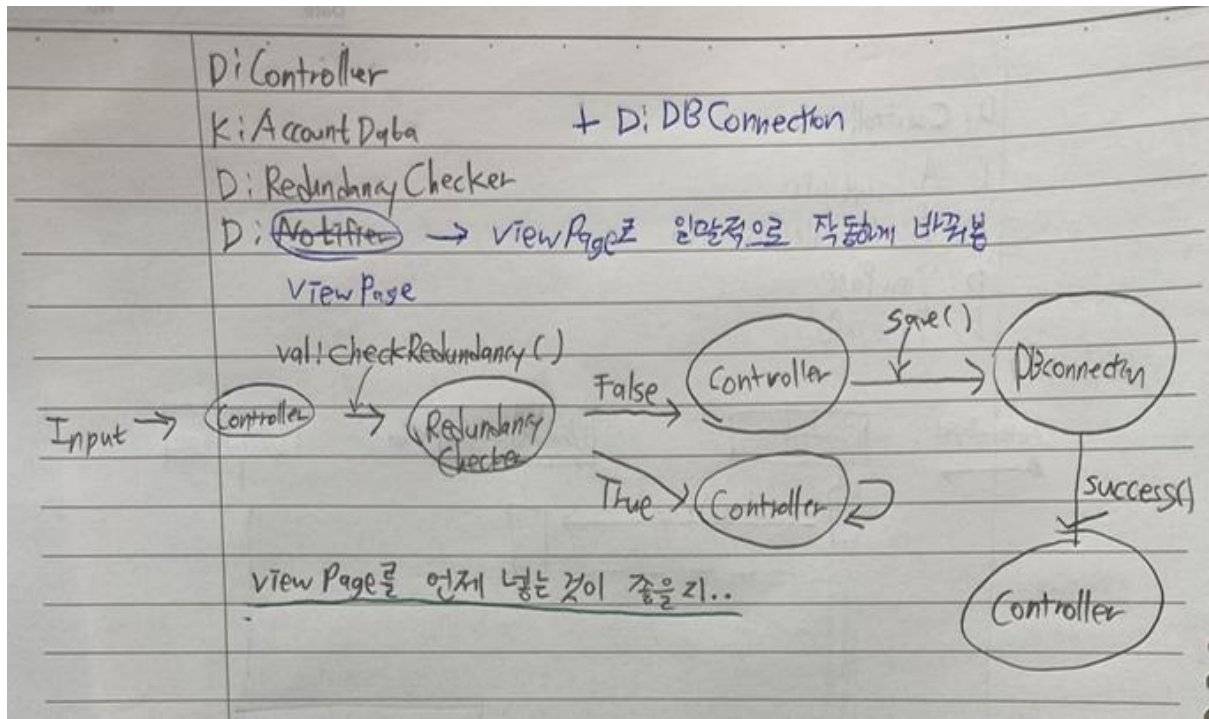 D: Controller
K: Account Data + D: DB Connection
D: Redundancy Checker
D: Notifier → view Page로 일괄적으로 작동하게 바꿔봄
view Page
val: checkRedundancy()
save()
Input → Controller → Redundancy Checker False → Controller → DBconnection
True → Controller
success()
view Page를 언제 넣는 것이 좋을지..
Controller